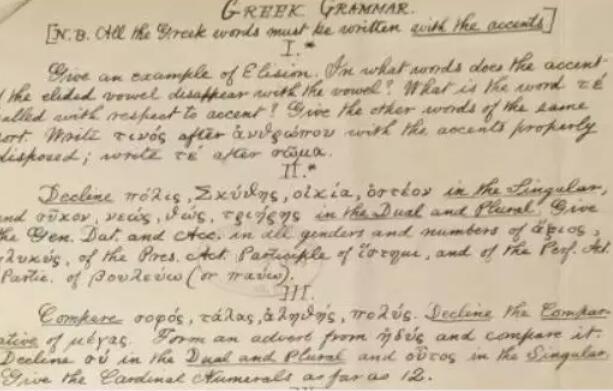 GREEK GRAMMAR.
[N.B. All the Greek words must be written with the accents]
I.*
Give an example of Elision. In what words does the accent
of the elided vowel disappear with the vowel? What is the word τέ
called with respect to accent? Give the other words of the same
sort. Write τινός after ἀνθρώπου with the accents properly
disposed; write τέ after σῶμα.
II.*
Decline πόλις, Σκύθης, οἰκία, ὀστέον in the Singular,
and σῦκον, νεώς, θώς, τριήρης in the Dual and Plural. Give
the Gen. Dat. and Acc. in all genders and numbers of ἄξιος,
γλυκύς, of the Pres. Act. Participle of ἵστημι, and of the Perf. Act.
Partic. of βουλεύω (or παύω).
III.
Compare σοφός, τάλας, ἀληθής, πολύς. Decline the Compar-
ative of μέγας. Form an advert from ἡδύς and compare it.
Decline σύ in the Dual and Plural and οὗτος in the Singular.
Give the Cardinal Numerals as far as 12.